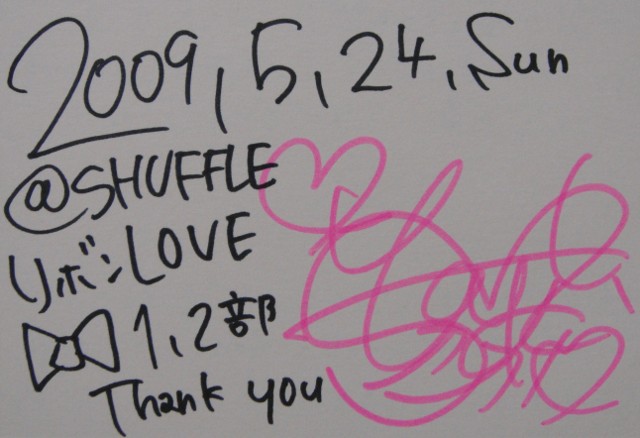 2009, 5, 24, Sun
@SHUFFLE
リボンLOVE
1, 2部
Thank you